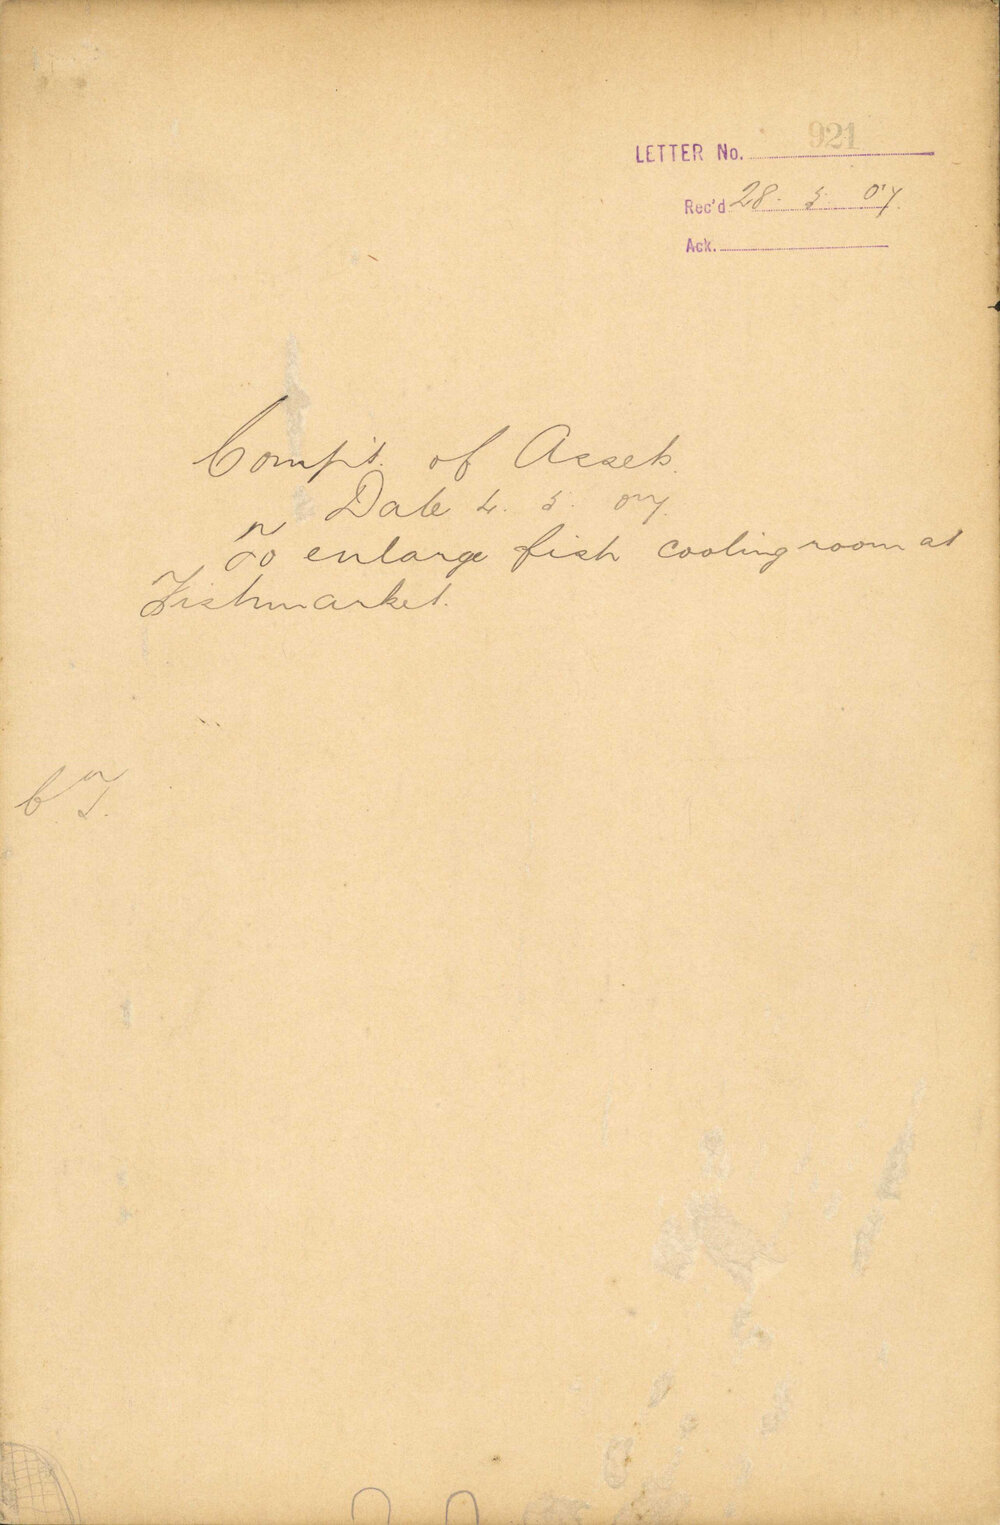 LETTER No. 921
Rec'd 28. 5. 07.
Ack.
Comp't. of Assets.
Date 4. 5. 07.
To enlarge fish cooling room at
Fishmarket.
C. T.